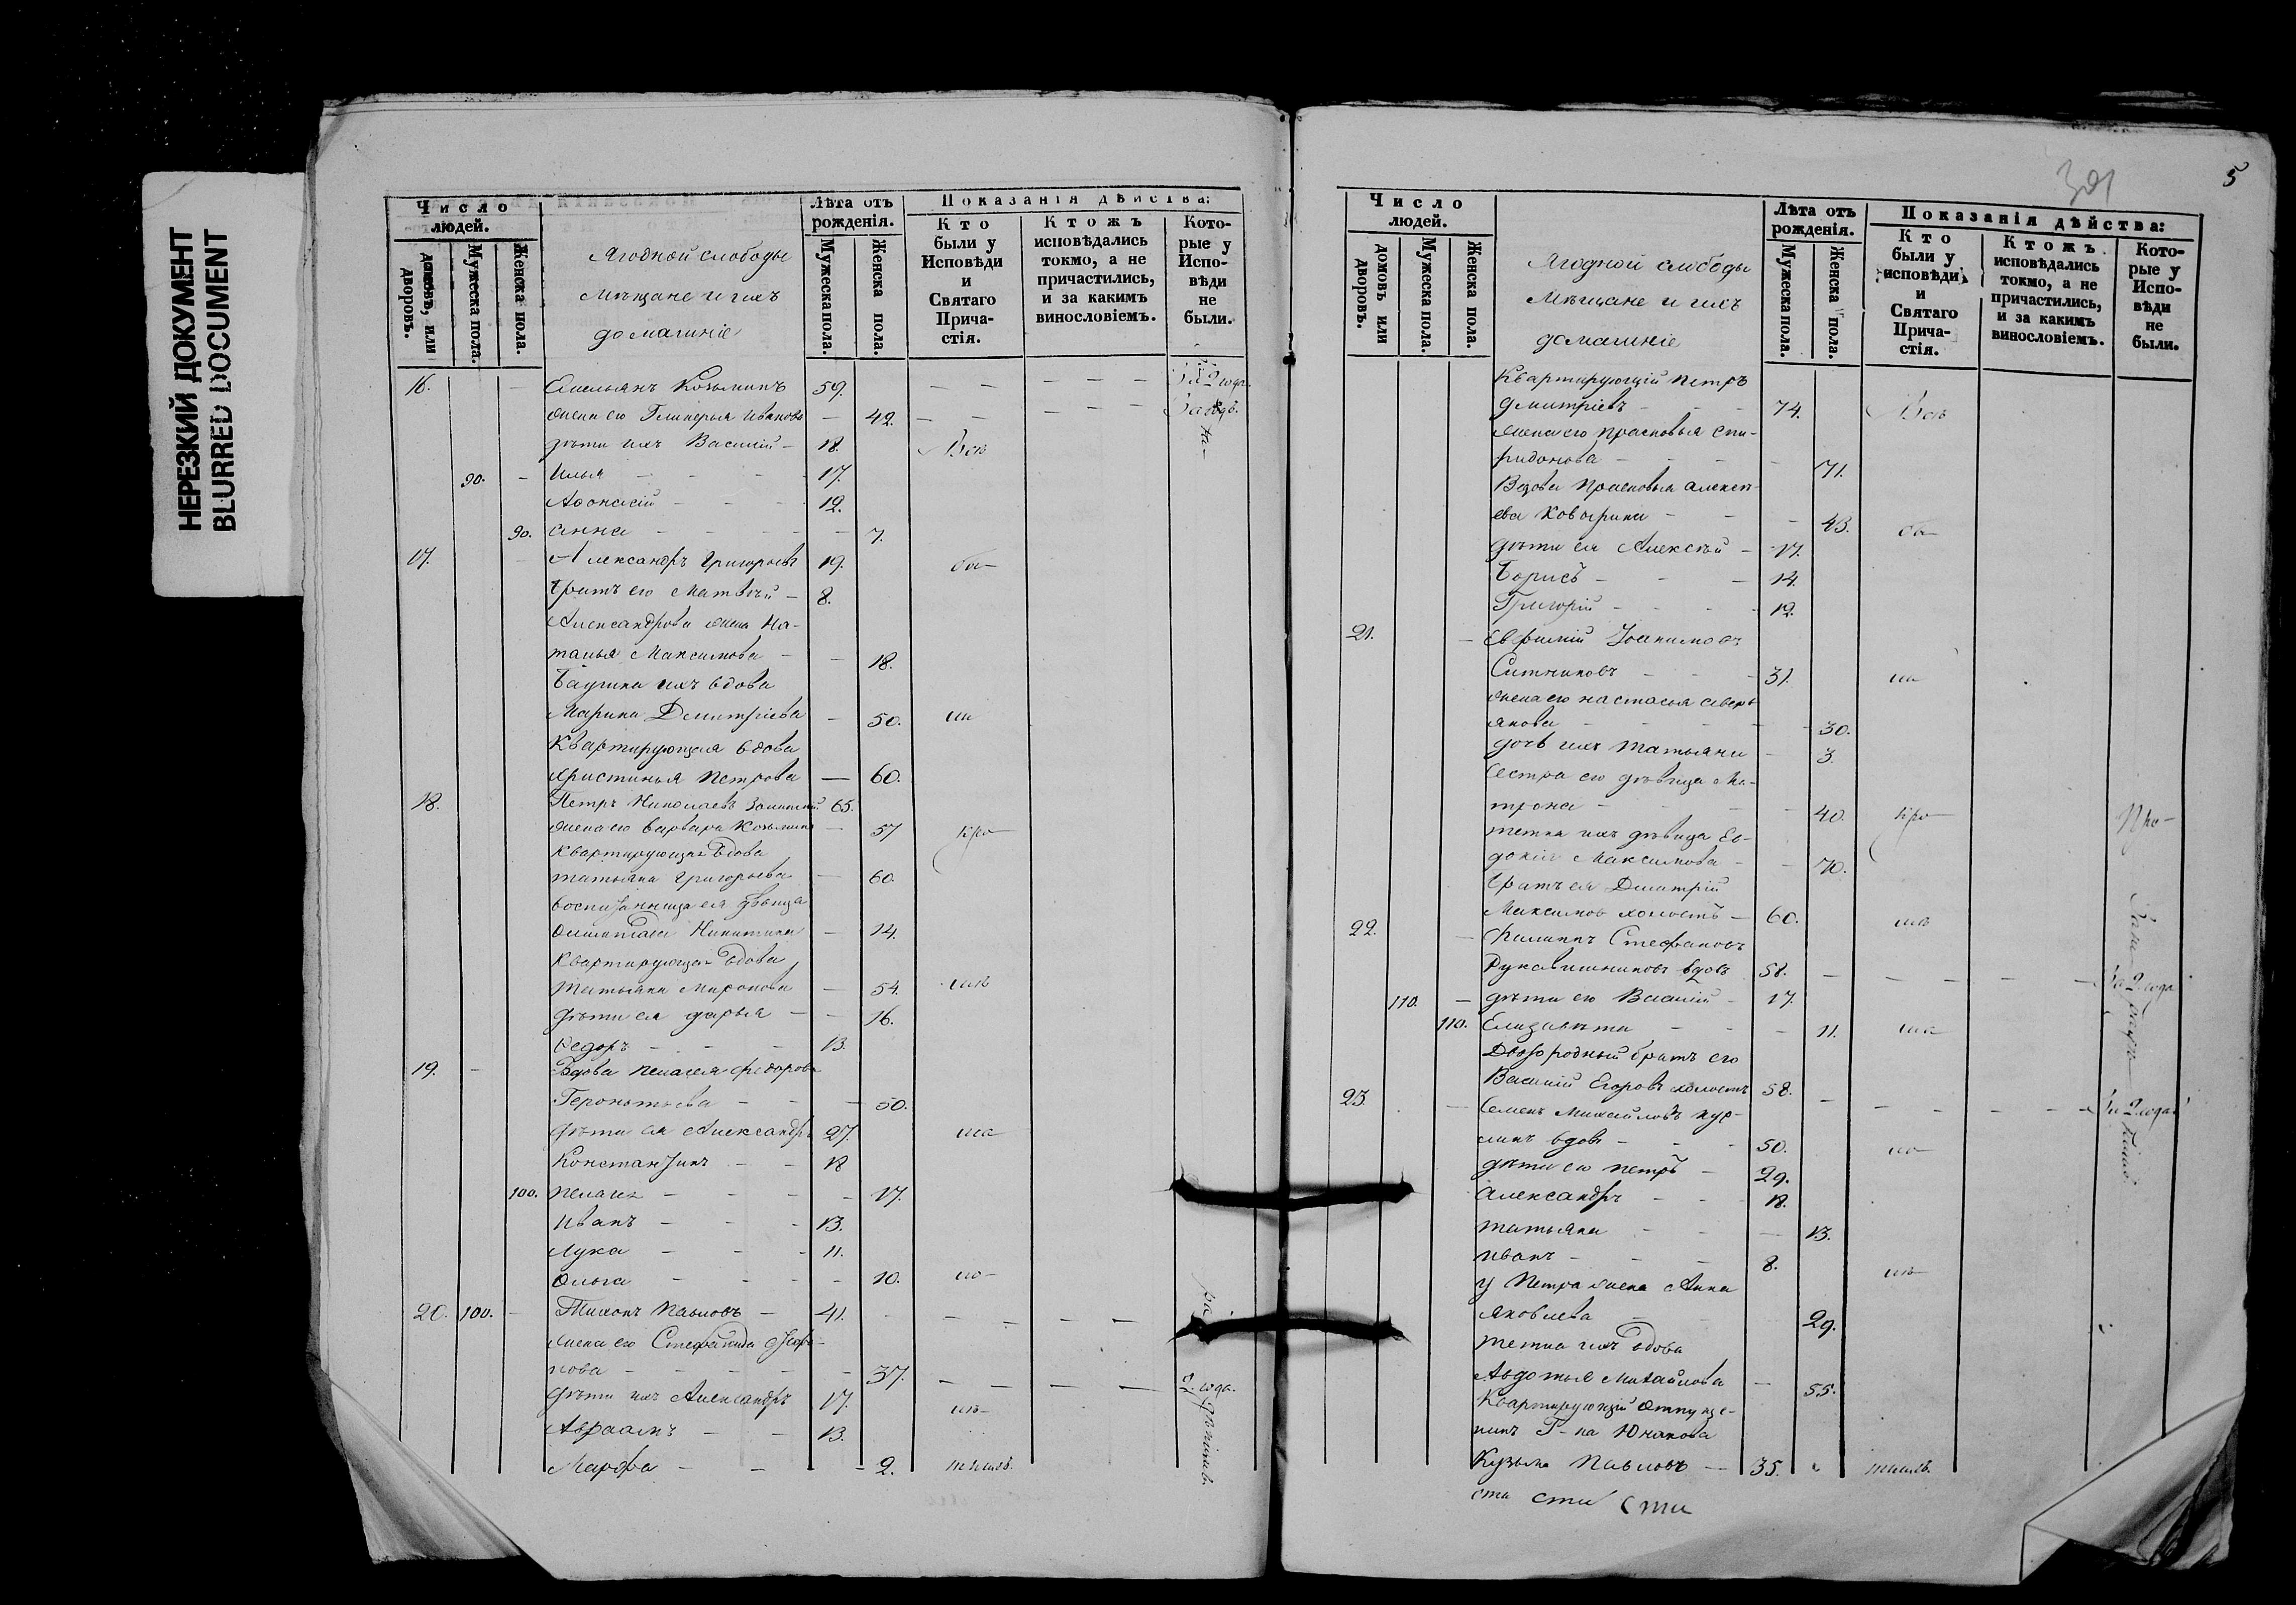 НЕРЕЗКИЙ ДОКУМЕНТ
BLURRED DOCUMENT
Число людей.
домовъ, или дворовъ.
Мужеска пола.
Женска пола.
Ягодной слободы
Мѣщане и ихъ
домашніе
Лѣта отъ рожденія.
Мужеска пола.
Женска пола.
Показанія дѣйства:
Кто были у Исповѣди и Святаго Прича-стія.
Ктожъ исповѣдались токмо, а не причастились, и за какимъ винословіемъ.
Кото-рые у Испо-вѣди не были.
16. Емельянъ Козьминъ 59. За 2 года.
жена его Гликерья Иванова 42.
дѣти ихъ Василій 18. Всѣ
90. Илья 17.
Аѳонасій 12.
90. Анна 7.
17. Александръ Григорьевъ 19.
братъ его Матвѣй 8.
Александрова жена На-
талья Максимова 18.
Бабушка ихъ вдова
Марина Дмитріева 50.
Квартирующая вдова
Христинья Петрова 60.
18. Петръ Николаевъ 65.
жена его Варвара Козьмина 57
Квартирующая вдова
Татьяна Григорьева 60.
воспитанница ея дѣвица
Олимпіада Никитина 14.
Квартирующая вдова
Татьяна Миронова 54.
дѣти ея Дарья 16.
Ѳедоръ 13.
19. Вдова Пелагея Федорова
Геронтьева 50.
дѣти ея Александръ 27.
Константинъ 18
100. Пелагея 17.
Иванъ 13.
Лука 11.
Ольга 10.
20. 100. Тихонъ Павловъ 41.
жена его Стефанида
нова 37. 2 года.
дѣти ихъ Александръ 17.
Авраамъ 13.
Марфа 2.
301
5
Число людей.
домовъ или дворовъ.
Мужеска пола.
Женска пола.
Ягодной слободы
Мѣщане и ихъ
домашніе
Лѣта отъ рожденія.
Мужеска пола.
Женска пола.
Показанія дѣйства:
Кто были у исповѣди и Святаго Прича-стія.
Ктожъ исповѣдались токмо, а не причастились, и за какимъ винословіемъ.
Кото-рые у Испо-вѣди не были.
Квартирующій Петръ
Дмитріевъ 74. Всѣ
жена его Прасковья Спи-
ридонова 71.
Вдова Прасковья Алексѣ-
ева 43.
дѣти ея Алексѣй 17.
Борисъ 14.
Григорій 12.
21. Евфимій Іоакимовъ
Ситниковъ 31.
жена его Настасья Аверь-
янова 30.
дочь ихъ Татьяна 3.
Сестра его дѣвица Ма-
трона 40.
тетка ихъ дѣвица Ев-
докія Максимова 70.
братъ ея Дмитрій
Максимов холостъ 60.
22. Филиппъ Стефановъ
Рукавишниковъ вдовъ 58. За 2 года
110. дѣти его Василій 17.
110. Елизавета 11.
Двоюродный братъ его
Василій Егоровъ холостъ 58. За 2 года
23. Семенъ Михайловъ Кур-
линъ вдовъ 50.
дѣти его Петръ 29.
Александръ 18.
Татьяна 13.
Иванъ 8.
у Петра жена Анна
Яковлева 29.
тетка ихъ вдова
Авдотья Михайлова 55.
Квартирующій отпуще-
никъ Г-на Юнакова
Кузьма Павловъ 35.
сти сти сти